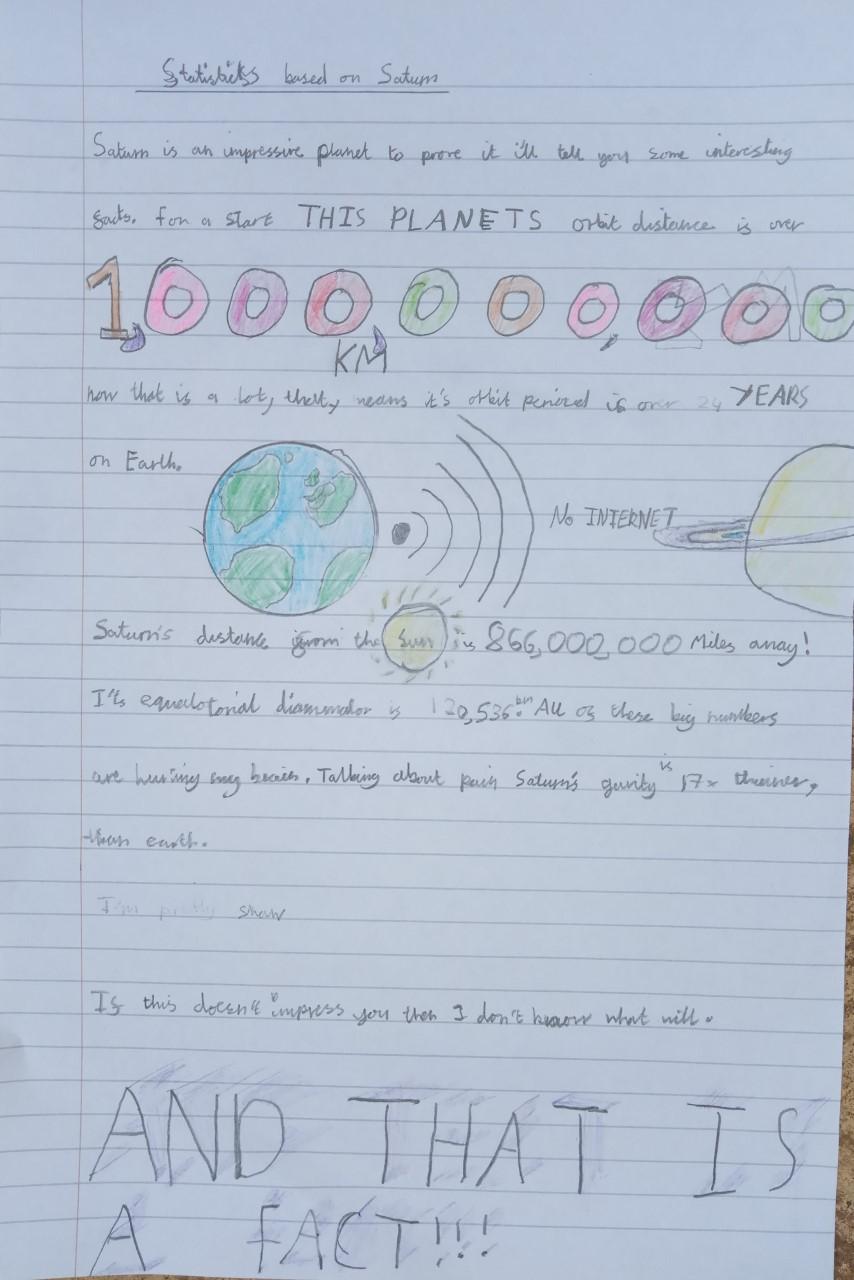 Statisticks based on Saturn
Saturn is an impressive planet to prove it i'll tell you some interesting
facts. For a start THIS PLANETS orbit distance is over
1,000,000,000
KM
now that is a lot, that, means it's orbit period is over 24 YEARS
on Earth.
No INTERNET
Saturn's distance from the Sun is 866,000,000 Miles away!
It's equaltorial diammator is 120,536km. All of these big numbers
are hurting my brain. Talking about pain Saturn's gravity is 17x
than earth.
I'm pretty
If this doesn't impress you then I don't know what will.
AND THAT IS
A FACT!!!